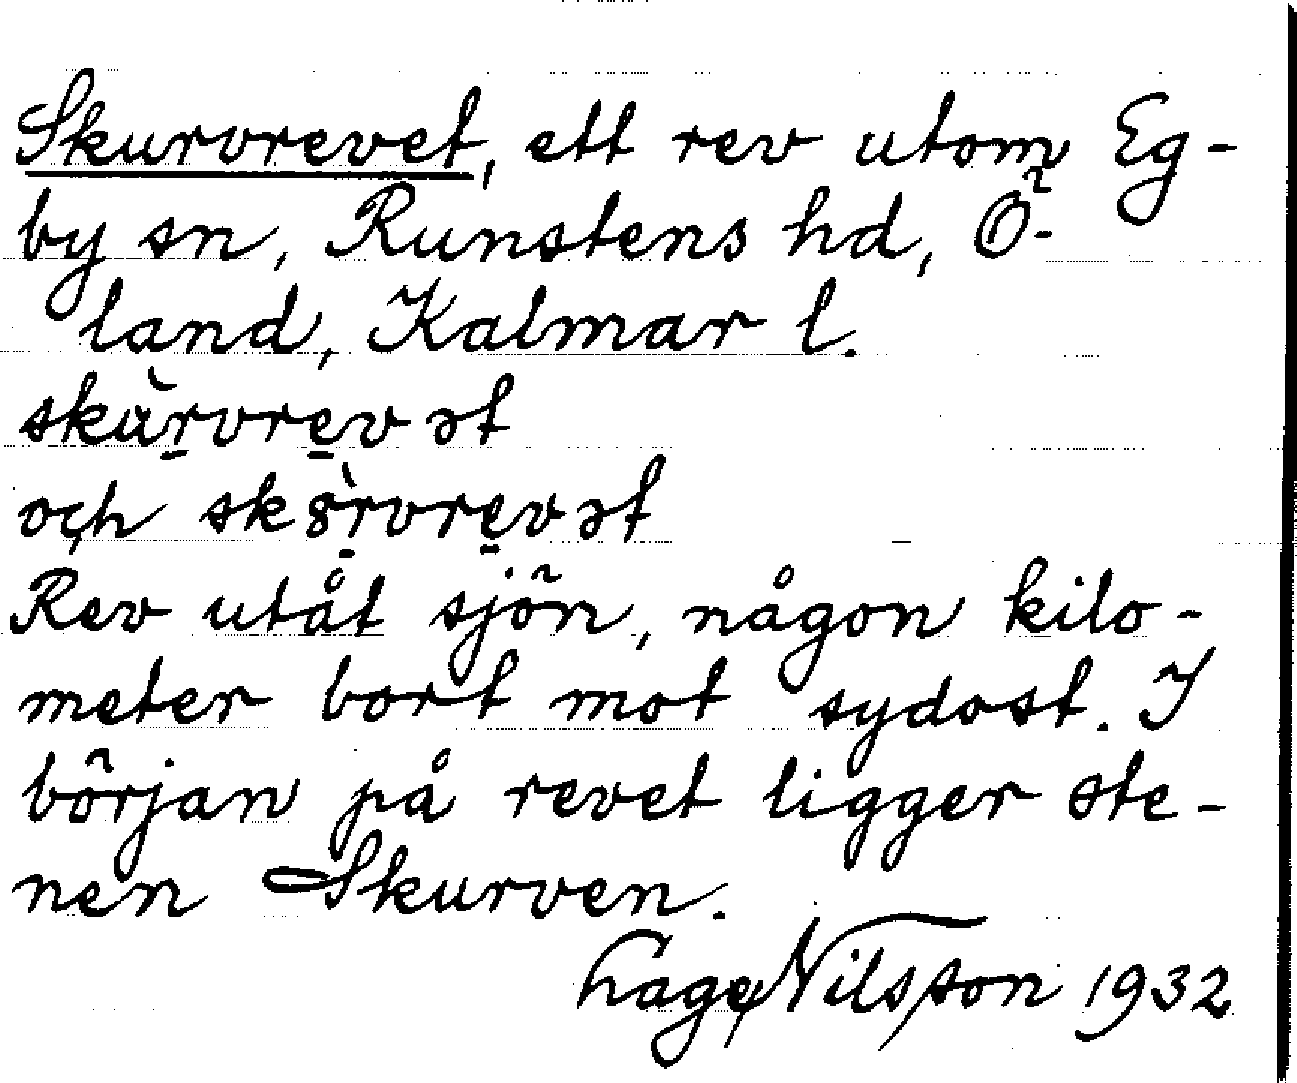 Skurvrevet, ett rev utom Eg-
by sn, Runstens hd, Ö-
land, Kalmar l.
skùr̠vre̠vət
och sk8̀r̠vre̠vət
Rev utåt sjön, någon kilo-
meter bort mot sydost. I
början på revet ligger ste-
nen Skurven.
Hage Nilsson 1932